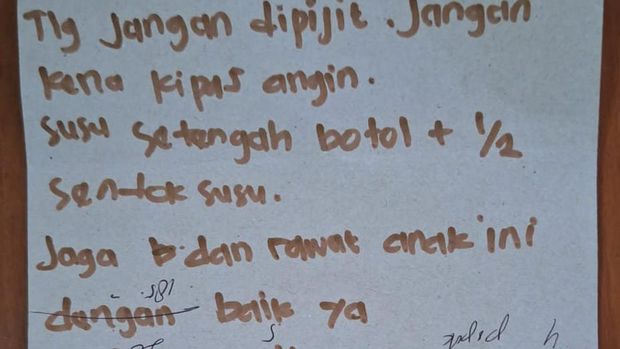 Tlg Jangan dipijit. Jangan
kena kipas angin.
susu setengah botol + 1/2
sentok susu.
Jaga b dan rawat anak ini
dengan baik ya